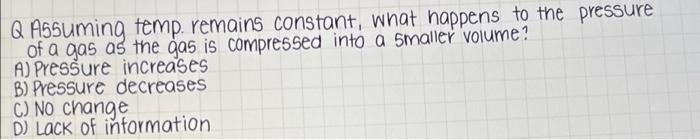 Q Assuming temp. remains constant, what happens to the pressure
of a gas as the gas is compressed into a smaller volume?
A) Pressure increases
B) Pressure decreases
C) No change
D) Lack of information